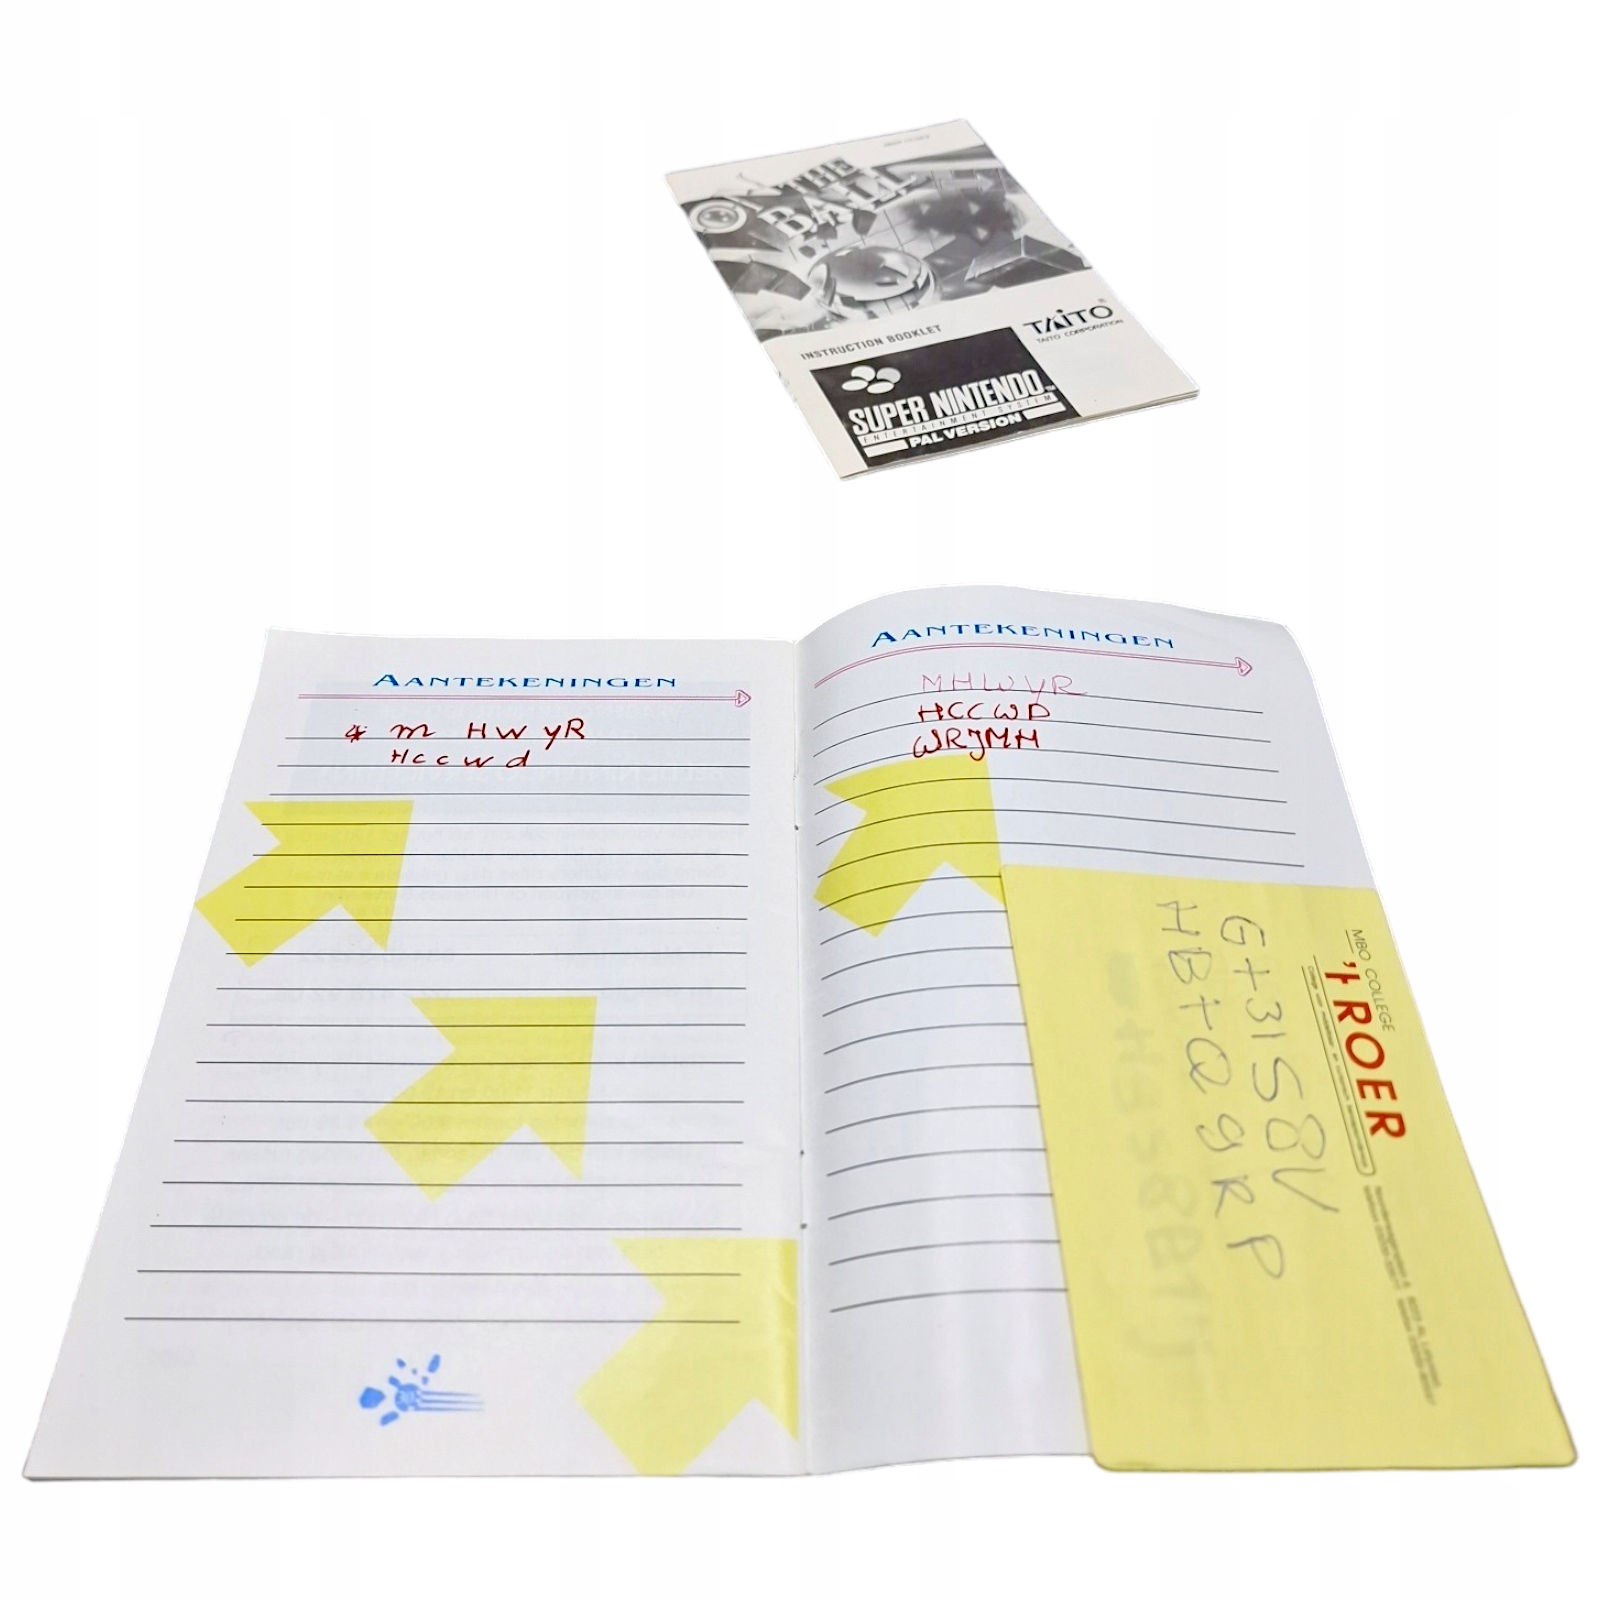 ON THE
BALL
INSTRUCTION BOOKLET
TAITO
TAITO CORPORATION
SUPER NINTENDO
ENTERTAINMENT SYSTEM
PAL VERSION
AANTEKENINGEN
m HWyR
Hccwd
AANTEKENINGEN
MHWYR
HCCWD
WRJMH
MBO COLLEGE
't ROER
G+31S8V
HB+Q9RP